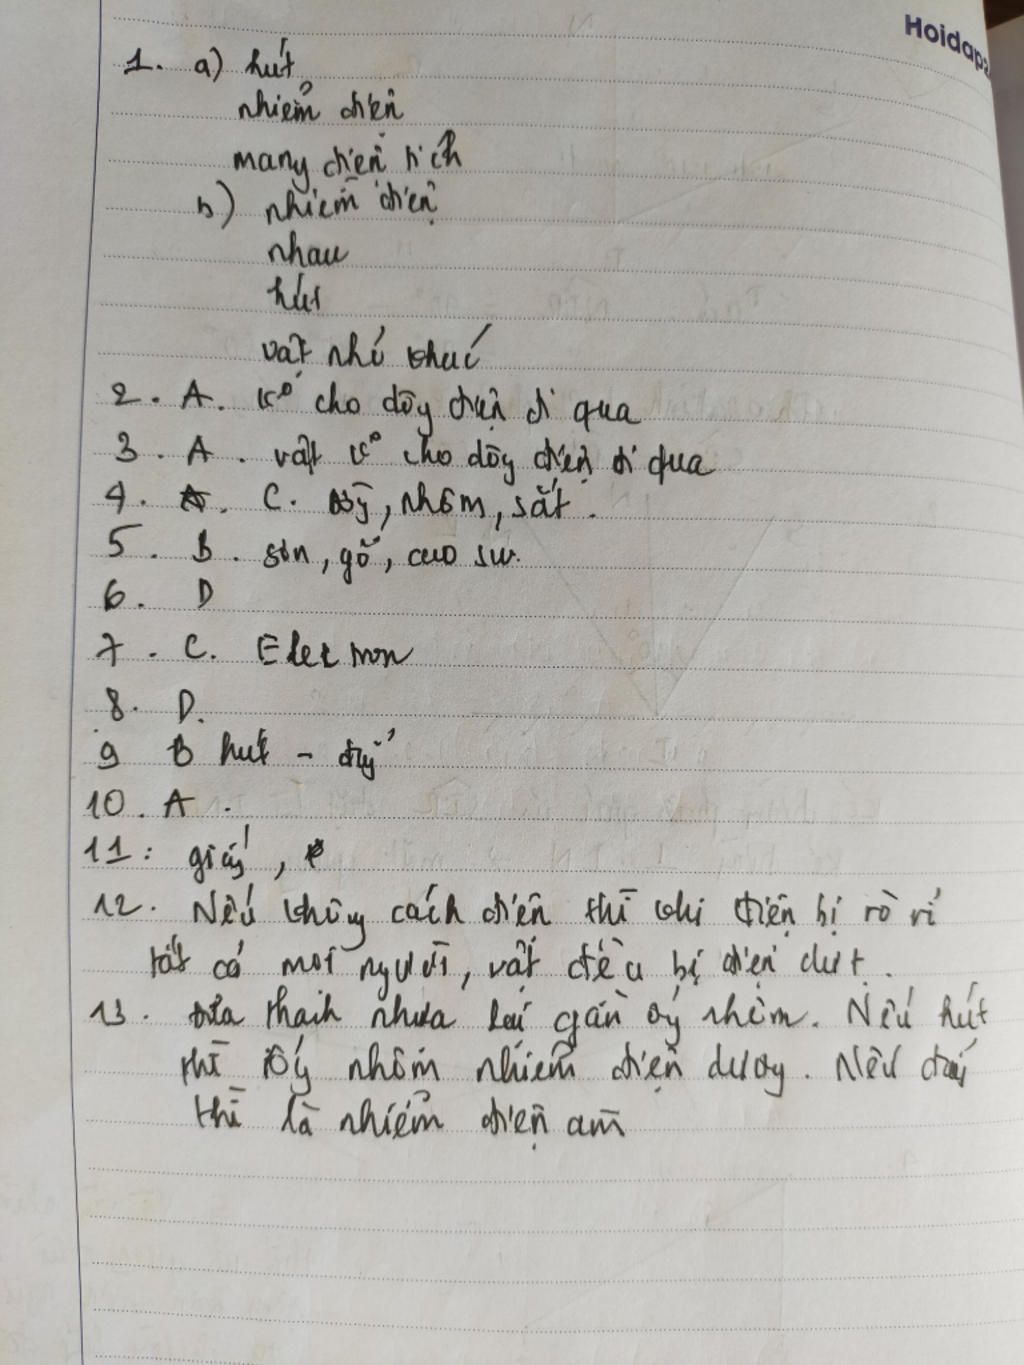 Hoidap
1. a) hút
nhiễm điện
mang điện tích
b) nhiễm điện
nhau
hút
vật nhỏ khác
2. A. k° cho dòng điện đi qua
3. A. vật k° cho dòng điện đi qua
4. C. nhôm, sắt.
5. B. sơn, gỗ, cao su.
6. D
7. C. Electron
8. D.
9 B hút - đẩy
10. A.
11: giấy,
12. Nếu không cách điện thì khi điện bị rò rỉ
tất cả mọi người, vật đều bị điện dựt.
13. Đưa thanh nhựa lại gần ống nhôm. Nếu hút
thì ống nhôm nhiễm điện dương. Nếu đẩy
thì là nhiễm điện âm